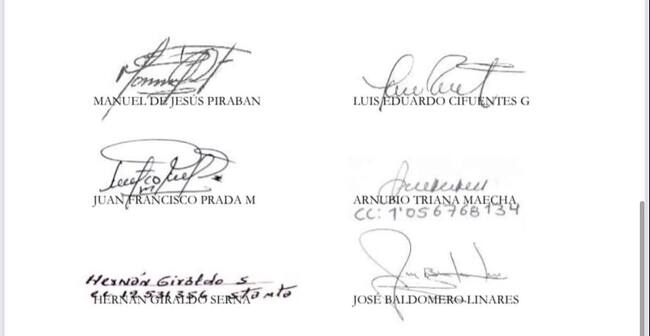 MANUEL DE JESÚS PIRABAN
LUIS EDUARDO CIFUENTES G
JUAN FRANCISCO PRADA M
ARNUBIO TRIANA MAECHA
CC: 1'056768134
Hernán Giraldo S
HERNÁN GIRALDO SERNA
JOSÉ BALDOMERO LINARES